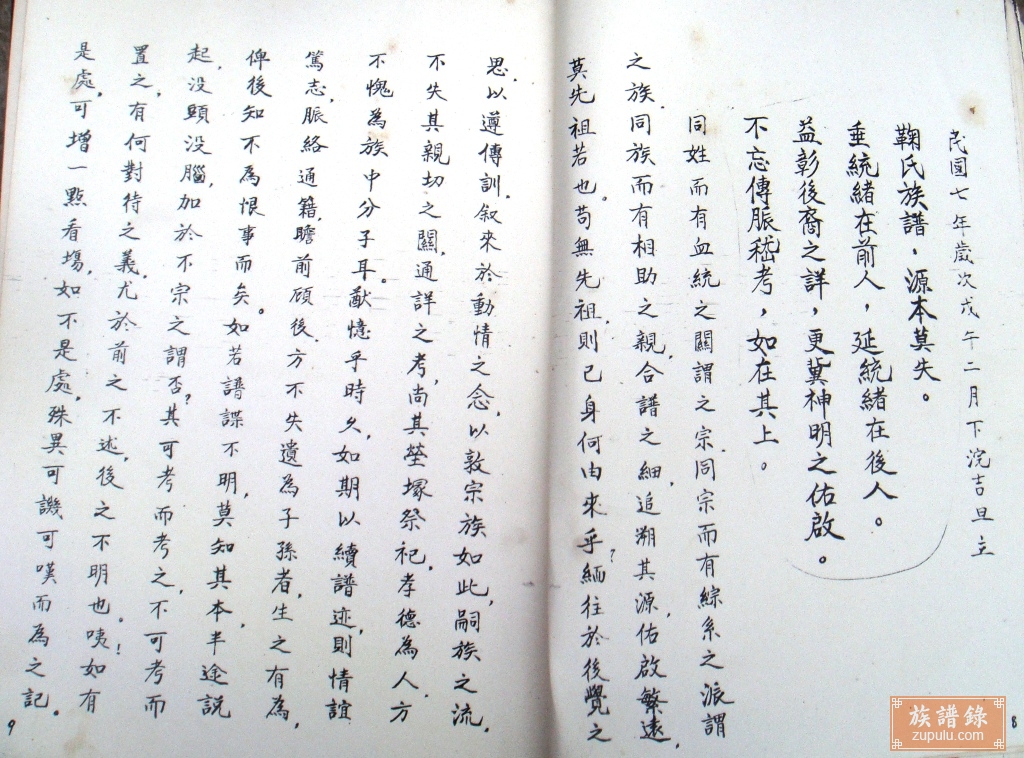 民國七年歲次戊午二月下浣吉旦立
鞠氏族譜，源本莫失。
垂統緒在前人，延統緒在後人。
益彰後裔之詳，更冀神明之佑啟。
不忘傳脈嵇考，如在其上。
同姓而有血統之關謂之宗.同宗而有綜系之派謂
之族.同族而有相助之親,合譜之細,追朔其源,佑啟繁遠,
莫先祖若也。苟無先祖,則己身何由來乎?緬往於後覺之
思.以遵傳訓.叙來於動情之念,以敦宗族如此,嗣族之流,
不失其親切之關,通詳之考,尚其塋塚祭祀.孝德為人.方
不愧為族中分子耳。猷憶乎時久,如期以續譜迹,則情誼
篤志,脈絡通籍,瞻前顧後.方不失遺為子孫者,生之有為,
俾後知不為恨事而矣。如若譜諜不明,莫知其本,半途說
起,没頭没腦,加於不宗之謂否?其可考而考之,不可考而
置之,有何對待之義,尤於前之不述,後之不明也。咦!如有
是處,可增一點看塲,如不是處,殊異可譏可嘆而為之記。
8
9
族譜錄
zupulu.com